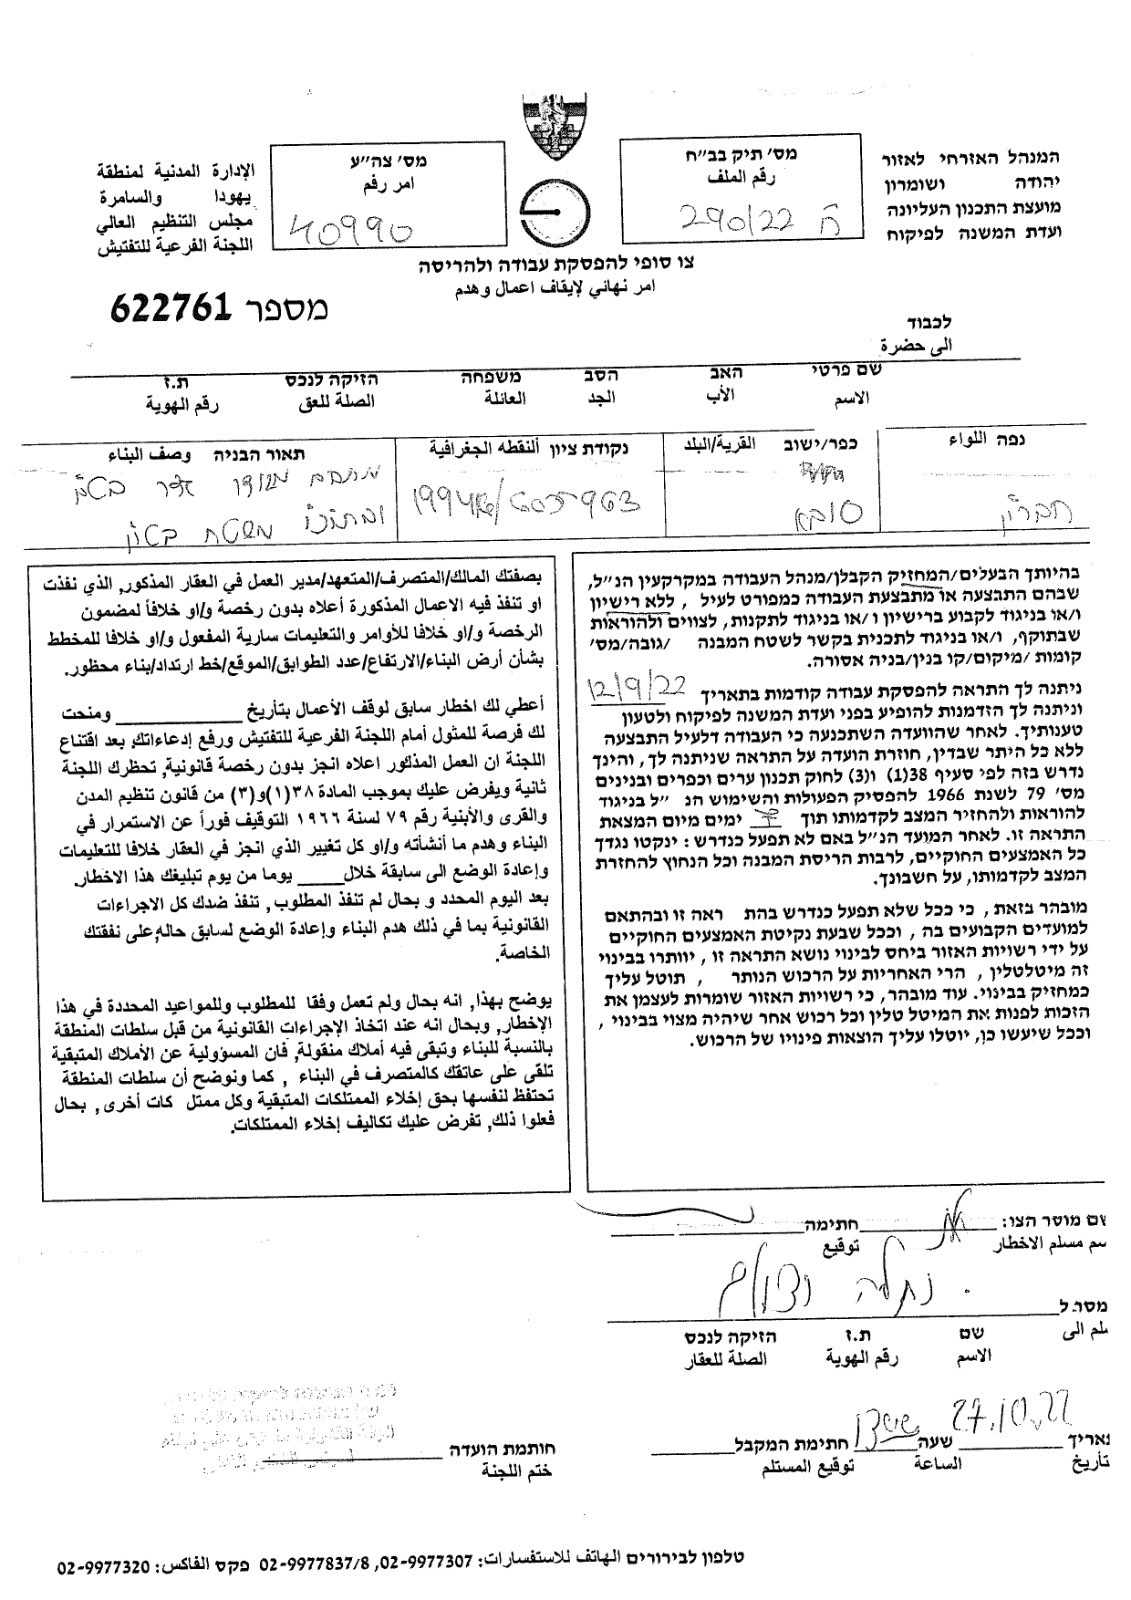 המנהל האזרחי לאזור
יהודה ושומרון
מועצת התכנון העליונה
ועדת המשנה לפיקוח
מס' תיק בב"ח
رقم الملف
ה 290/22
מס' צה"ע
امر رقم
40990
الإدارة المدنية لمنطقة
يهودا والسامرة
مجلس التنظيم العالي
اللجنة الفرعية للتفتيش
צו סופי להפסקת עבודה ולהריסה
امر نهائي لإيقاف اعمال وهدم
מספר 622761
לכבוד
الى حضرة
שם פרטי האב הסב משפחה הזיקה לנכס ת.ז
الاسم الأب الجد العائلة الصلة للعق رقم الهوية
נפה اللواء
חברון
כפר/ישוב القرية/البلد
סובא
נקודת ציון ألنقطه الجغرافية
תאור הבניה وصف البناء
מתחם מגודר
ובתוכו משטח בטון
בהיותך הבעלים/המחזיק הקבלן/מנהל העבודה במקרקעין הנ"ל,
שבהם התבצעה או מתבצעת העבודה כמפורט לעיל , ללא רישיון
ו/או בניגוד לקבוע ברישיון ו/או בניגוד לתקנות, לצווים ולהוראות
שבתוקף, ו/או בניגוד לתכנית בקשר לשטח המבנה /גובה/מס'
קומות /מיקום/קו בנין/בניה אסורה.
ניתנה לך התראה להפסקת עבודה קודמות בתאריך 12/9/22
וניתנה לך הזדמנות להופיע בפני ועדת המשנה לפיקוח ולטעון
טענותיך. לאחר שהוועדה השתכנעה כי העבודה דלעיל התבצעה
ללא כל היתר שבדין, חוזרת הועדה על התראה שניתנה לך, והינך
נדרש בזה לפי סעיף 38(1) ו(3) לחוק תכנון ערים וכפרים ובנינים
מס' 79 לשנת 1966 להפסיק הפעולות והשימוש הנ"ל בניגוד
להוראות ולהחזיר המצב לקדמותו תוך ימים מיום המצאת
התראה זו. לאחר המועד הנ"ל באם לא תפעל כנדרש: ינקטו נגדך
כל האמצעים החוקיים, לרבות הריסת המבנה וכל הנחוץ להחזרת
המצב לקדמותו, על חשבונך.
מובהר בזאת, כי ככל שלא תפעל כנדרש בהת ראה זו ובהתאם
למועדים הקבועים בה, וככל שבעת נקיטת האמצעים החוקיים
על ידי רשויות האזור ביחס לבינוי נושא התראה זו, יוותרו בבינוי
זה מיטלטלין, הרי האחריות על הרכוש הנותר , תוטל עליך
כמחזיק בבינוי. עוד מובהר, כי רשויות האזור שומרות לעצמן את
הזכות לפנות את המיטל טלין וכל רכוש אחר שיהיה מצוי בבינוי ,
וככל שיעשו כן, יוטלו עליך הוצאות פינויו של הרכוש.
بصفتك المالك/المتصرف/المتعهد/مدير العمل في العقار المذكور, الذي نفذت
او تنفذ فيه الاعمال المذكورة أعلاه بدون رخصة و/او خلافاً لمضمون
الرخصة و/او خلافا للأوامر والتعليمات سارية المفعول و/او خلافا للمخطط
بشأن أرض البناء/الارتفاع/عدد الطوابق/الموقع/خط ارتداد/بناء محظور.
أعطي لك اخطار سابق لوقف الأعمال بتأريخ ____ ومنحت
لك فرصة للمثول أمام اللجنة الفرعية للتفتيش ورفع إدعاءاتك, بعد اقتناع
اللجنة ان العمل المذكور اعلاه انجز بدون رخصة قانونية, تحظرك اللجنة
ثانية ويفرض عليك بموجب المادة ٣٨(١)و(٣) من قانون تنظيم المدن
والقرى والأبنية رقم ٧٩ لسنة ١٩٦٦ التوقيف فوراً عن الاستمرار في
البناء وهدم ما أنشأته و/او كل تغيير الذي انجز في العقار خلافا للتعليمات
وإعادة الوضع الى سابقة خلال____ يوما من يوم تبليغك هذا الاخطار.
بعد اليوم المحدد و بحال لم تنفذ المطلوب, تنفذ ضدك كل الاجراءات
القانونية بما في ذلك هدم البناء وإعادة الوضع لسابق حاله, على نفقتك
الخاصة.
يوضح بهذا, انه بحال ولم تعمل وفقا للمطلوب وللمواعيد المحددة في هذا
الإخطار, وبحال انه عند اتخاذ الإجراءات القانونية من قبل سلطات المنطقة
بالنسبة للبناء وتبقى فيه أملاك منقولة, فان المسؤولية عن الأملاك المتبقية
تلقى على عاتقك كالمتصرف في البناء , كما ونوضح أن سلطات المنطقة
تحتفظ لنفسها بحق إخلاء الممتلكات المتبقية وكل ممتل كات أخرى, بحال
فعلوا ذلك, تفرض عليك تكاليف إخلاء الممتلكات.
ום מוסר הצו: חתימה
سم مسلم الاخطار توقيع
מסר ל
نلم الى
שם ת.ז הזיקה לנכס
الاسم رقم الهوية الصلة للعقار
27.10.22
נאריך שעה חתימת המקבל
تأريخ الساعة توقيع المستلم
חותמת הועדה
ختم اللجنة
טלפון לבירורים الهاتف للاستفسارات: 02-9977307, 02-9977837/8 פקס الفاكس: 02-9977320